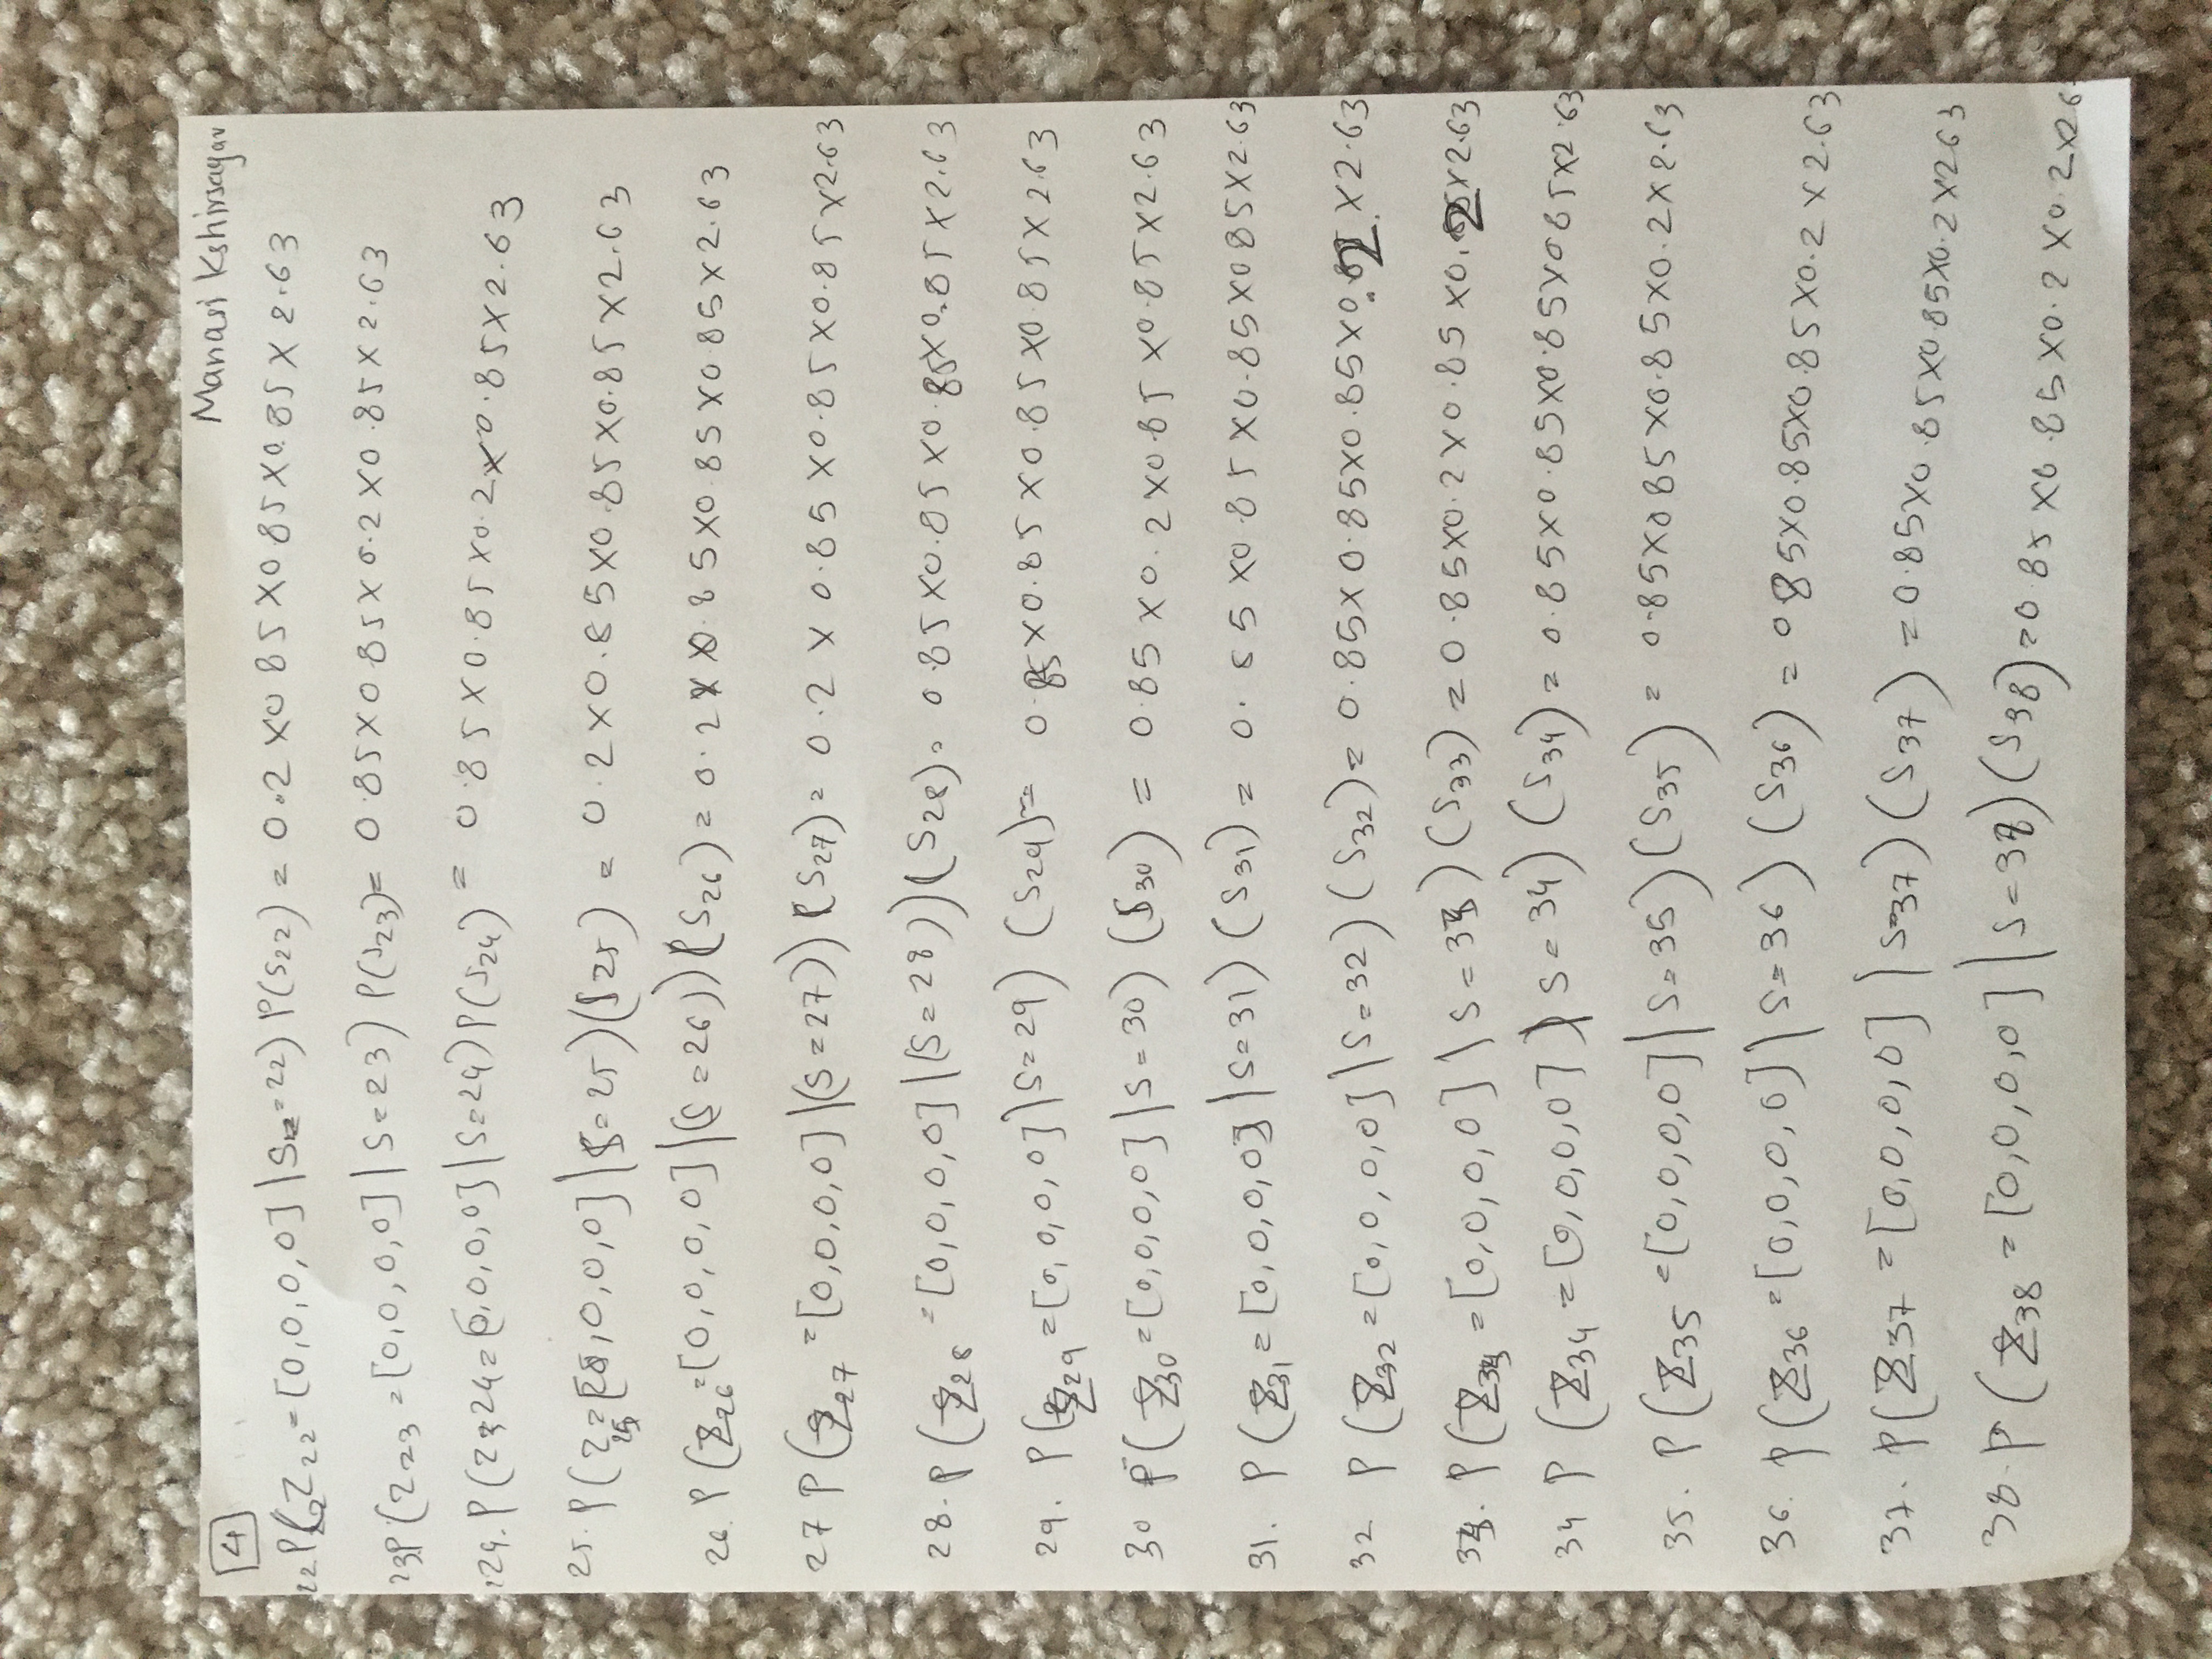 Manasi Kshirsagar
4
22 P(Z22=[0,0,0,0]|S=22) P(S22) = 0.2 X0 85 X0 85 X0.85 X 2.63
23P(Z23=[0,0,0,0]|S=23) P(S23)= 0.85X0 85X 0.2 X0.85 X 2.63
24. P(Z24=[0,0,0,0]|S=24)P(S24) = 0.85X0.85X0.2X0.85X2.63
25. P(Z25=[0,0,0,0]|S=25)(S25) = 0.2X0.85X0.85X0.85X2.63
26. P(Z26=[0,0,0,0]|(S=26))(S26)= 0.2 X 0.85X0.85X0.85X2.63
27 P(Z27=[0,0,0,0]|(S=27))(S27)= 0.2 X 0.85 X0.85X0.85X2.63
28. P(Z28=[0,0,0,0]|(S=28))(S28)= 0.85X0.85X0.85X0.85X2.63
29. P(Z29=[0,0,0,0]|S=29) (S29)= 0.85X0.85X0.85X0.85X2.63
30 P(Z30=[0,0,0,0]|S=30) (S30) = 0.85 X0.2X0.85X0.85X2.63
31. P(Z31=[0,0,0,0]|S=31) (S31)= 0.85X0.85X0.85X0 85X2.63
32 P(Z32=[0,0,0,0]|S=32) (S32)= 0.85X0.85X0.85X0.2 X2.63
33. P(Z33=[0,0,0,0]|S=33) (S33) = 0.85X0.2X0.85X0.2X2.63
34 P(Z34=[0,0,0,0]|S=34) (S34)= 0.85X0.85X0.85X0 85X2.63
35. P(Z35=[0,0,0,0]|S=35) (S35) = 0.85X0 85X0.85X0.2X2.63
36. P(Z36=[0,0,0,0]|S=36) (S36) = 0 85X0.85X0.85X0.2X2.63
37. P(Z37=[0,0,0,0]|S=37) (S37) = 0.85X0.85X0.85X0.2X2.63
38. P(Z38=[0,0,0,0]|S=38)(S38)=0 85 X0.85X0.2X0.2X2 6